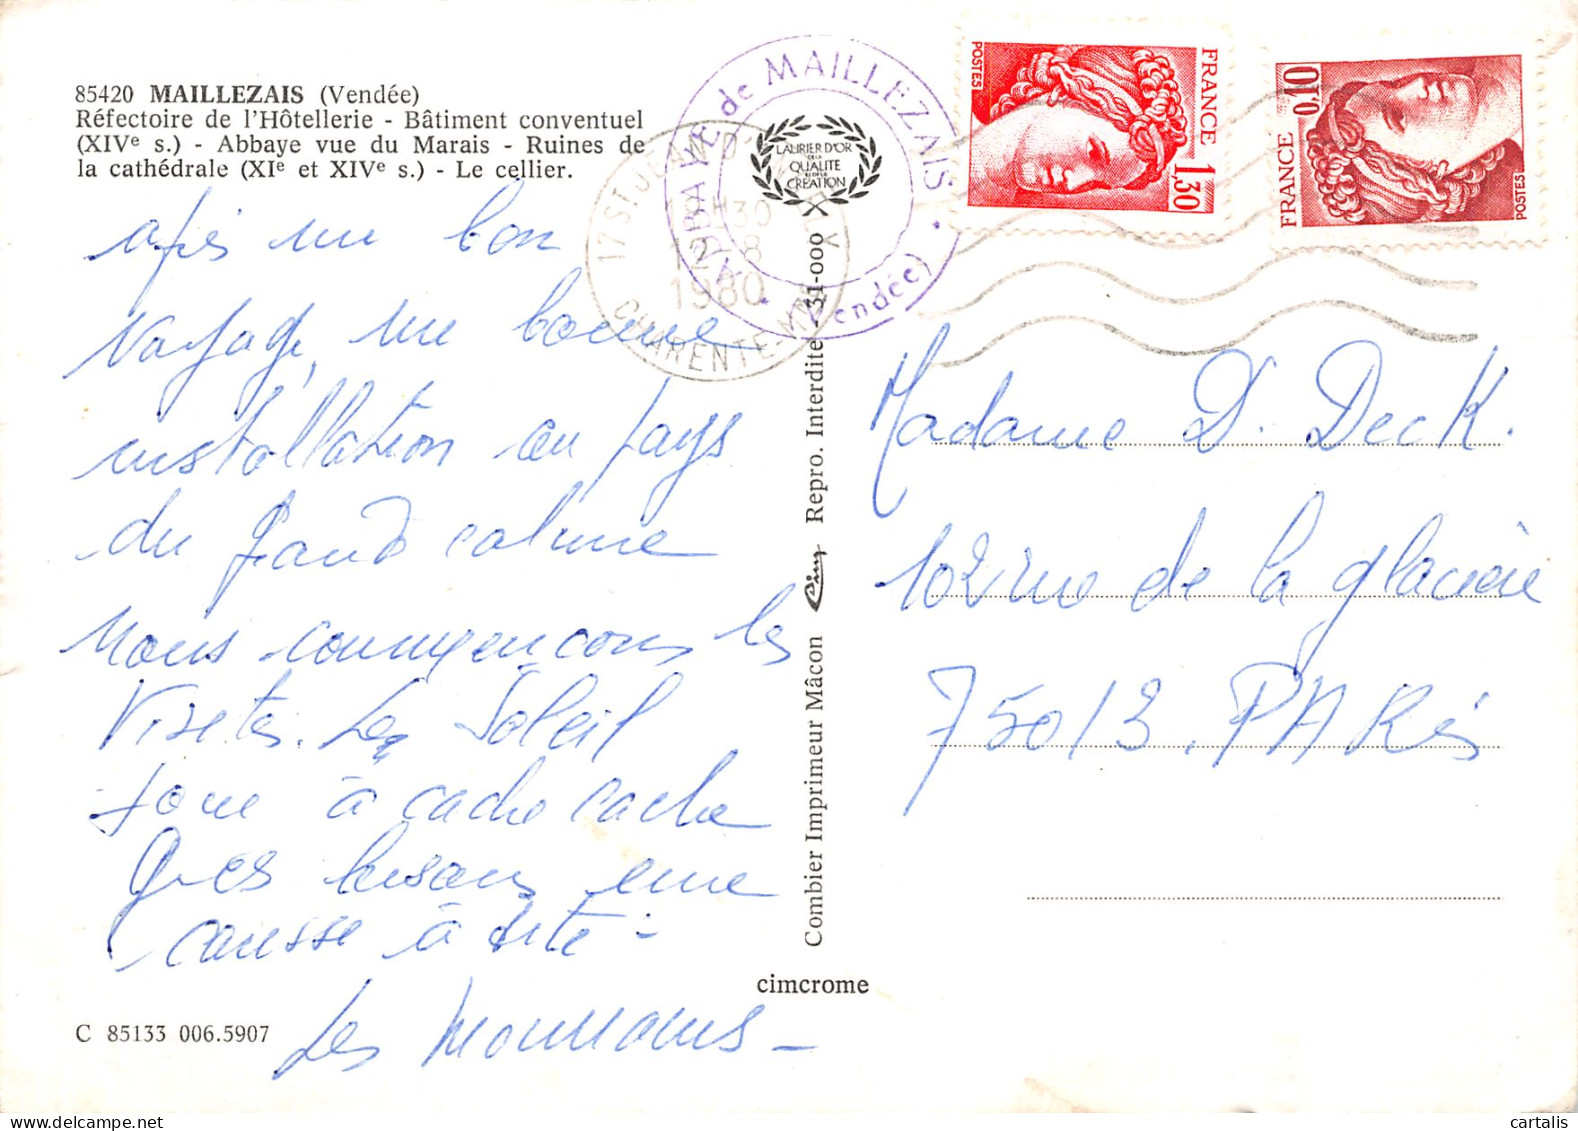 85420 MAILLEZAIS (Vendée)
Réfectoire de l'Hôtellerie - Bâtiment conventuel
(XIVe s.) - Abbaye vue du Marais - Ruines de
la cathédrale (XIe et XIVe s.) - Le cellier.
après un bon
voyage, une bonne
installation au pays
du grand calme
nous commençons les
visites. Le Soleil
joue à cache cache
Gros bisous une
causse à tité -
Les
C 85133 006.5907
ABBAYE de MAILLEZAIS
(Vendée)
17 ST JEAN D'ANGELY
H30
12-8
1980
CHARENTE-MME
LAURIER D'OR
DE LA
QUALITE
ET DE LA
CREATION
POSTES
FRANCE
1,30
0,10
FRANCE
POSTES
Combier Imprimeur Mâcon Cim Repro. Interdite 31-000
cimcrome
Madame D. Deck.
102 rue de la glacière
75013. PARis
cartalis